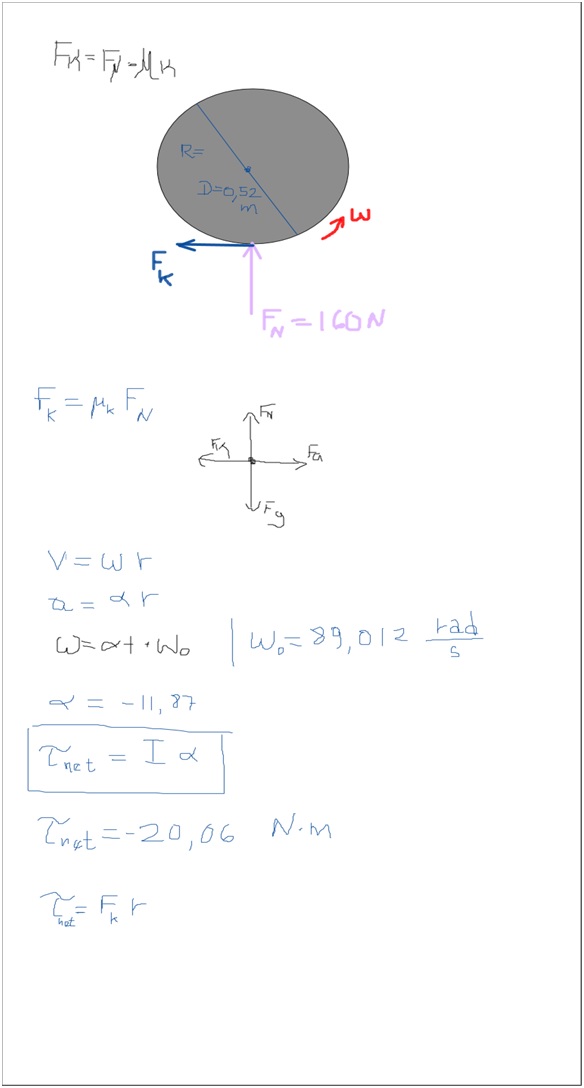 FK=FN-μK
R=
D=0,52
m
ω
FK
FN=160N
Fk=μk FN
FN
FK
Fa
Fg
V=ωr
a=αr
ω=αt·ω0
|ω0=89,012 rad/s
α=-11,87
τnet=Iα
τnet=-20,06 N·m
τnet=Fk r